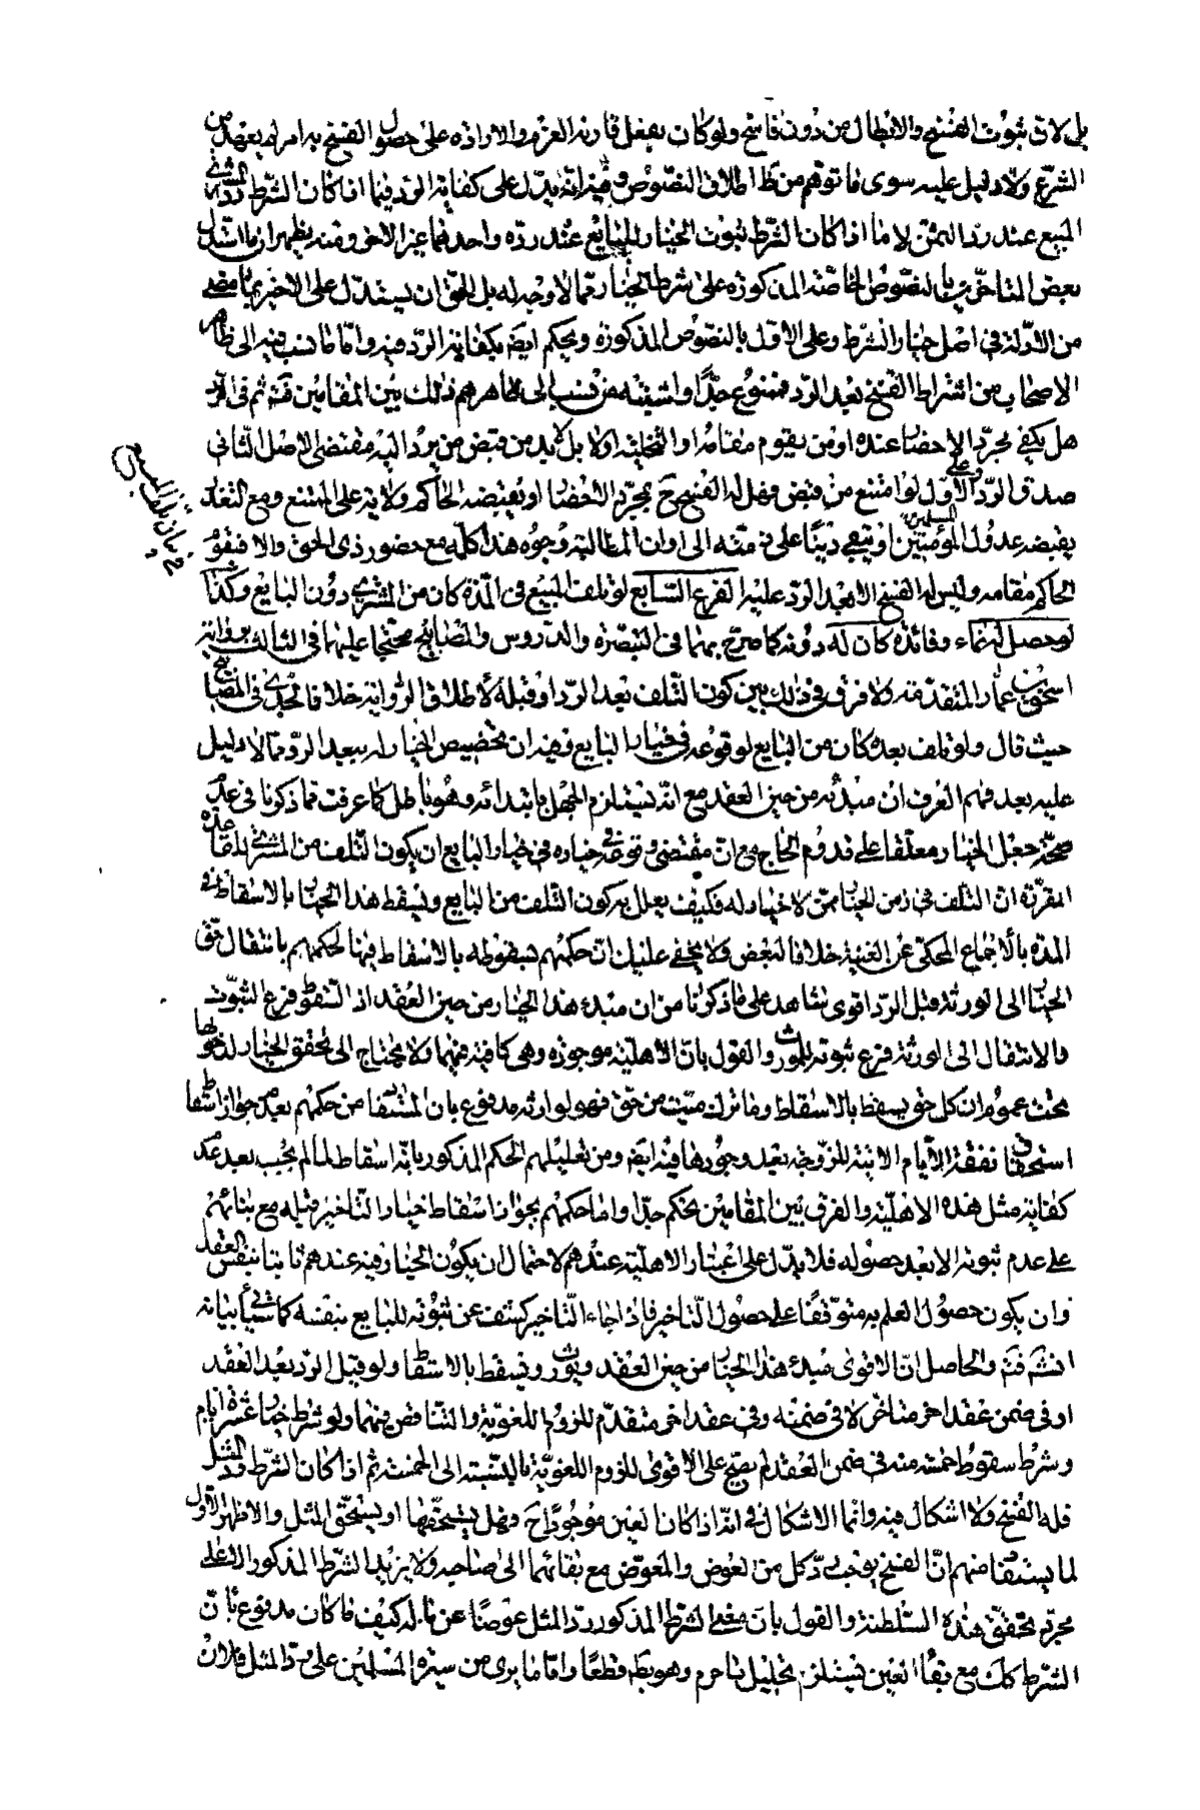 بل لان ثبوت الفسخ والابطال من دون فاسخ ولو كان بفعل قارنه العزم والارادة على حصول الفسخ به امر لم يعهد من
الشرع ولا دليل عليه سوى ما توهم من ظ اطلاق النصوص وفيه انه يدل على كفاية الرد فيما اذا كان الشرط رد المشترى
المبيع عند رد الثمن لا ما اذا كان الشرط ثبوت الخيار للبايع عند رده واحدهما غير الاخر ومنه يظهر ان ما استدل
بعض المتاخرين بالنصوص الخاصة المذكورة على شرط الخيار مما لا وجه له بل الحق ان يستدل على الاخير بما مضى
من الادلة في اصل خيار الشرط وعلى الاول بالنصوص المذكورة ويحكم ايضا بكفاية الرد فيه واما ما نسب فيه الى ظاهر
الاصحاب من اشتراط الفسخ بعد الرد فممنوع جدا واشتبه من نسب الى ظاهرهم ذلك بين المقامين فتم ثم في الرد
هل يكفي مجرد الاحضار عنده او من يقوم مقامه او التخلية اولا بل لابد من قبض من يرد اليه مقتضى الاصل الثاني
صدق الرد على الاول لو امتنع من قبض فهل له الفسخ ح بمجرد الاحضار او يقبضه الحاكم ولاية على الممتنع ومع التعذر
يقبضه عدول المؤمنين المسلمين او يبقى دينا على ذمته الى اوان المطالبة وجوه هذا كله مع حضور ذى الحق والا فيقوم
الحاكم مقامه وليس له الفسخ الا بعد الرد عليه الفرع السابع لو تلف المبيع في المدة كان من المشترى دون البايع وكذا
لو حصل له نماء وفائدة كان له دونه كما صرح بهما في التبصرة والدروس والمصابيح محتجا عليهما في الثالث برواية
اسحق بن عمار المتقدمة ولا فرق في ذلك بين كون التلف بعد الرد او قبله لاطلاق الرواية خلافا لجدى في المصابيح
حيث قال ولو تلف بعده كان من البايع لوقوعه في خيار البايع وفيه ان تخصيص الخيار له ببعد الرد مما لا دليل
عليه بعد فهم العرف ان مبدئه من حين العقد مع انه يستلزم الجهل بابتدائه وهو باطل كما عرفت مما ذكرنا في عدم
صحة جعل الخيار معلقا على قدوم الحاج مع ان مقتضى وقوعه في خياره في خيار البايع ان يكون التلف من المشترى للقاعدة
المقررة ان التلف في زمن الخيار ممن لا خيار له فكيف يعلل به كون التلف من البايع ويسقط هذا الخيار بالاسقاط في
المدة بالاجماع المحكى عن الغنية خلافا لبعض ولا يخفى عليك ان حكمهم بسقوطه بالاسقاط فيها لحكمهم بانتقال حق
الخيار الى الورثة قبل الرد اقوى شاهد على ما ذكرنا من ان مبدء هذا الخيار من حين العقد اذ السقوط فرع الثبوت
كالانتقال الى الورثة فرع ثبوته للمورث والقول بان الاهلية موجوده وهى كافية فيهما ولا يحتاج الى تحقق الخيار لدخولها
تحت عموم ان كل حق يسقط بالاسقاط وما ترك ميت من حق فهو لوارثه مدفوع بان المستفاد من حكمهم بعدم جواز اسقاط
استحقاق نفقة الايام الاتية للزوجة بعد وجودها فيه ايضا ومن تعليلهم الحكم المذكور بانه اسقاط لما لم يجب بعد عدم
كفاية مثل هذه الاهلية والفرق بين المقامين تحكم جدا واما حكمهم بجواز اسقاط خيار التاخير قبله مع بنائهم
على عدم ثبوته الا بعد حصوله فلا يدل على اعتبار الاهلية عندهم لاحتمال ان يكون الخيار فيه عندهم ثابتا بنفس العقد
وان يكون حصول العلم به متوقفا على حصول التاخير فاذا جاء التاخير كشف عن ثبوته للبايع بنفسه كما سياتى بيانه
انشم فتم والحاصل ان الاقوى مبدء هذا الخيار من حين العقد ويورث ويسقط بالاسقاط ولو قبل الرد بعد العقد
او في ضمن عقد اخر متاخر لا في ضمنه وفي عقد اخر متقدم للزوم اللغوية والتناقض فيهما ولو شرط خيار عشرة ايام
وشرط سقوط خمسة منه في ضمن العقد لم يصح على الاقوى للزوم اللغوية بالنسبة الى الخمسة ثم اذا كان الشرط رد المثل
فله الفسخ ولا اشكال فيه وانما الاشكال في انه اذا كان العين موجودا ح فهل يستحقها او يستحق المثل والاظهر الاول
لما يستفاد منهم ان الفسخ يوجب رد كل من العوض والمعوض مع بقائهما الى صاحبه ولا يزيد الشرط المذكور الا على
مجرد تحقق هذه السلطنة والقول بان مقتضى الشرط المذكور رد المثل عوضا عن ماله كيف ما كان مدفوع بان
الشرط كك مع بقاء العين يستلزم تحليل ما حرم وهو بط قطعا واما ما يرى من سيرة المسلمين على رد المثل فلان